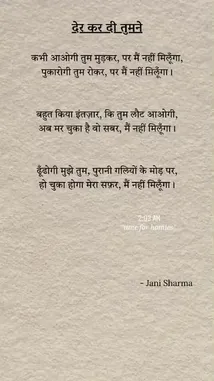 देर कर दी तुमने
कभी आओगी तुम मुड़कर, पर मैं नहीं मिलूँगा,
पुकारोगी तुम रोकर, पर मैं नहीं मिलूँगा।
बहुत किया इंतज़ार, कि तुम लौट आओगी,
अब मर चुका है वो सबर, मैं नहीं मिलूँगा।
ढूँढोगी मुझे तुम, पुरानी गलियों के मोड़ पर,
हो चुका होगा मेरा सफ़र, मैं नहीं मिलूँगा।
- Jani Sharma